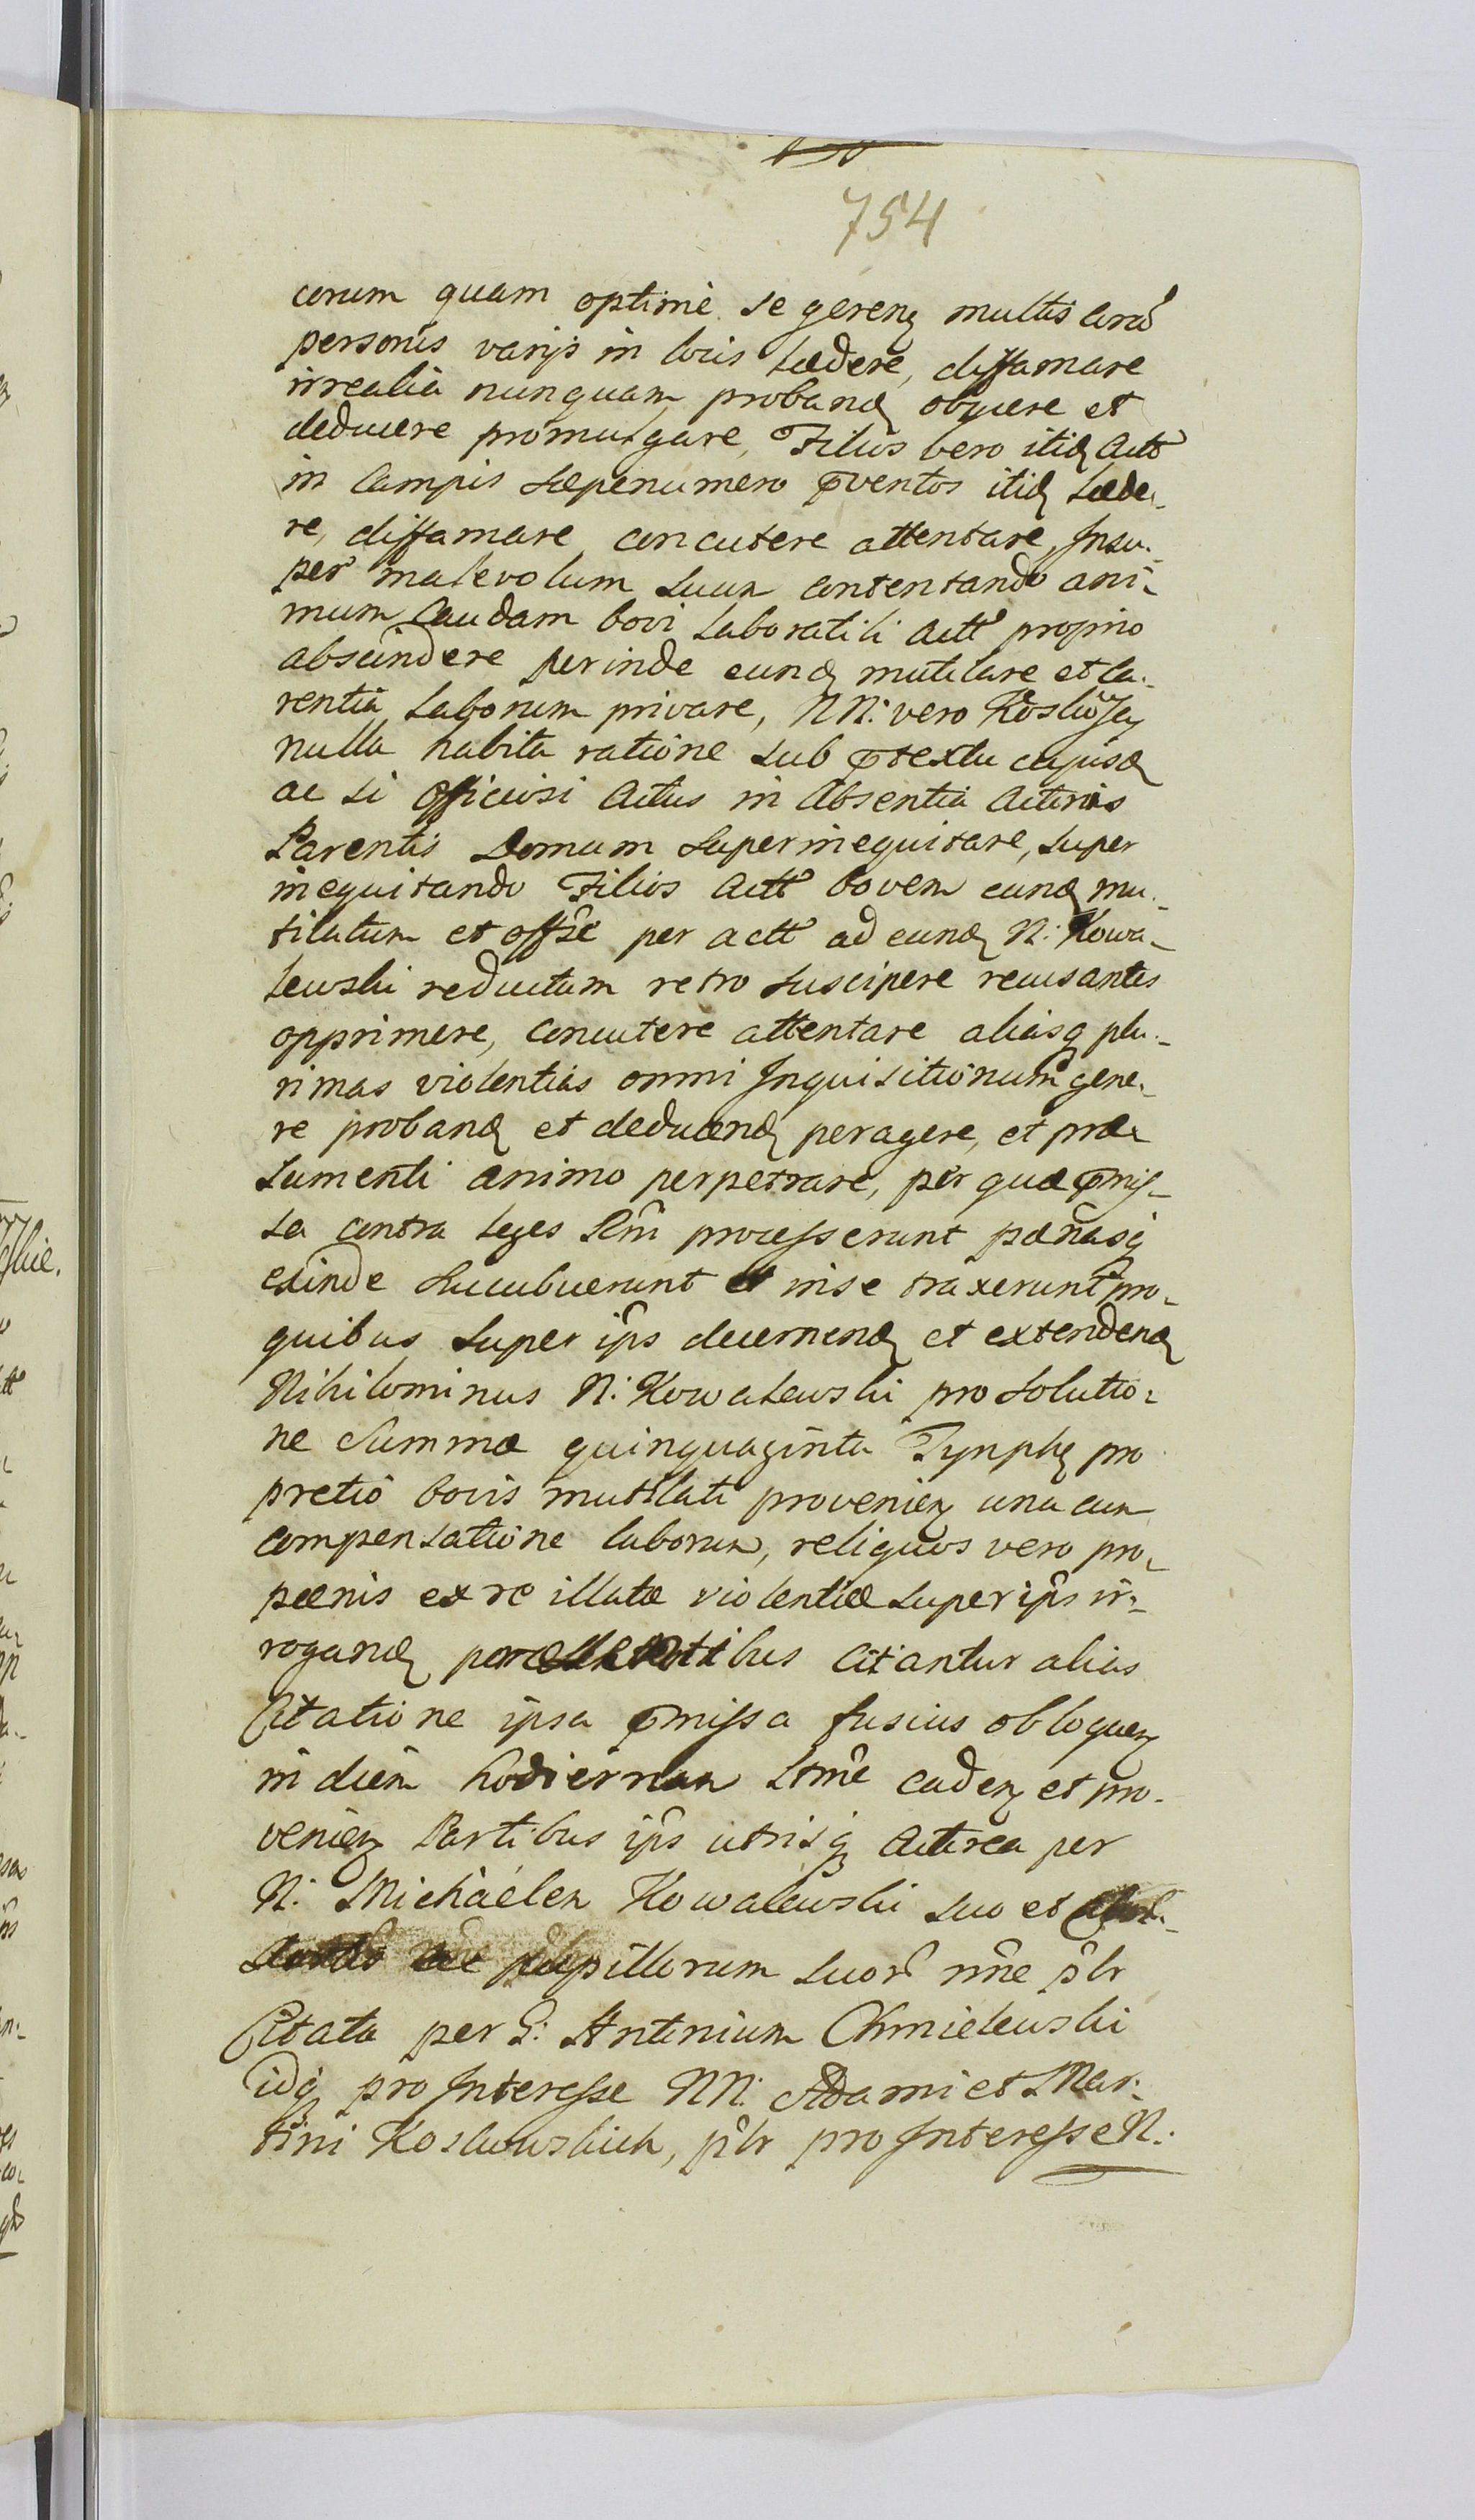 754
corum quam optimè se gereng multis corā
personis varijs in locis lædere, diffamare
irrealia nunquam proband objicere et
deducere promulgare, Filios vero itid Actt
in Campis sæpenumero pventos itid læde-
re, diffamare concutere attentare, Insu-
per malevolum suum contentando ani-
mum Caudam bovi laboratili Actt proprio
abscindere perinde eund mutilare et ca-
rentia laborum privare, NN: vero
nulla habita ratione sub ptextu cujusd
ac si officiosi Actus in absentia Actoris
Parentis Domum superinequitare, super
inequitando Filios Actt bovem eund mu-
tilatum et offse per actt ad eund N: Kowa-
lewski reductum retro suscipere recusantes
opprimere, concutere attentare aliasq plu-
rimas violentias omni Inquisitionum gene-
re proband et deducend peragere, et præ
sumenti animo perpetrare, per quæ pmis-
sa contra leges Rni processerunt pænasq
exinde succubuerunt et in se traxerunt pro
quibus super ips decernend et extendend
Nihilominus N: Kowalewski pro solutio-
ne Summæ quinquaginta Tynph pro
pretio bovis mutilati provenien una cum
compensatione laborum, reliquos vero pro
pænis ex re illatæ violentiæ super ips ir-
rogand Citantur alias
Citatione ipsa pmissa fusius obloquen
in diem hodiernam Ltme caden et pro-
venien Partibus ips utrisq Actorea per
N: Michaelem Kowalewski suo et
pupillorum suor nne plr
Citata per G: Antonium Chmielewski
idq pro Interesse NN: Adami et Mar-
tini Koslowskich, plr pro Interesse N: